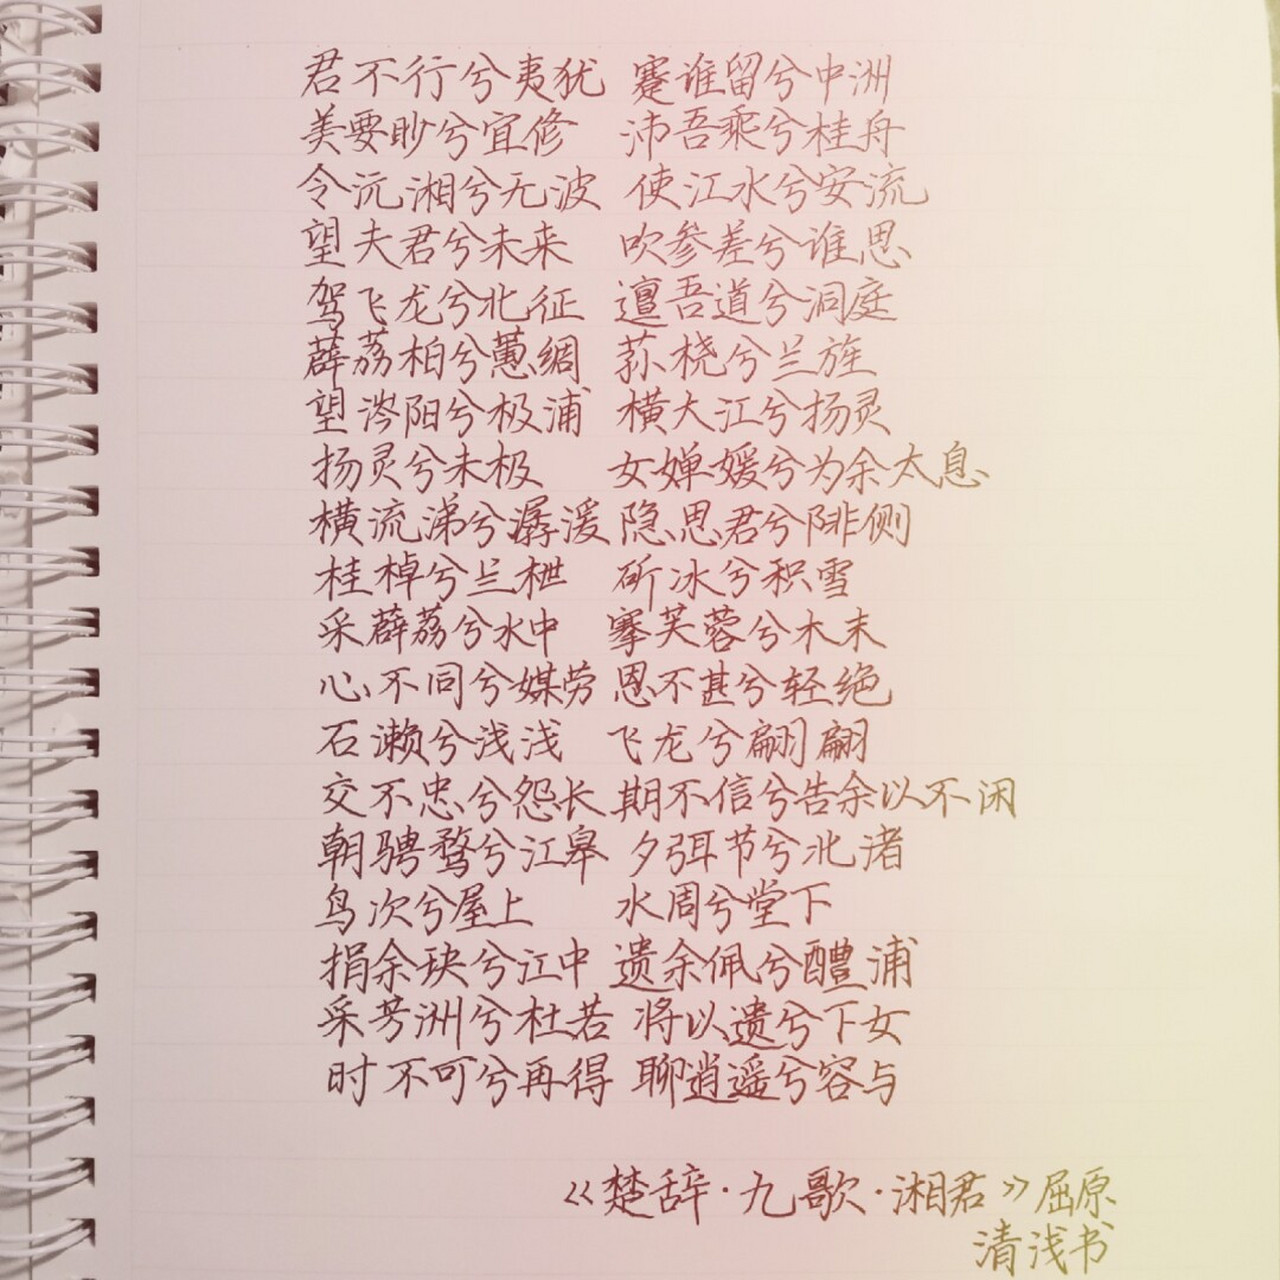 君不行兮夷犹 蹇谁留兮中洲
美要眇兮宜修 沛吾乘兮桂舟
令沅湘兮无波 使江水兮安流
望夫君兮未来 吹参差兮谁思
驾飞龙兮北征 邅吾道兮洞庭
薜荔柏兮蕙绸 荪桡兮兰旌
望涔阳兮极浦 横大江兮扬灵
扬灵兮未极 女婵媛兮为余太息
横流涕兮潺湲 隐思君兮陫侧
桂棹兮兰枻 斫冰兮积雪
采薜荔兮水中 搴芙蓉兮木末
心不同兮媒劳 恩不甚兮轻绝
石濑兮浅浅 飞龙兮翩翩
交不忠兮怨长 期不信兮告余以不闲
朝骋鹜兮江皋 夕弭节兮北渚
鸟次兮屋上 水周兮堂下
捐余玦兮江中 遗余佩兮醴浦
采芳洲兮杜若 将以遗兮下女
时不可兮再得 聊逍遥兮容与
《楚辞·九歌·湘君》屈原
清浅书